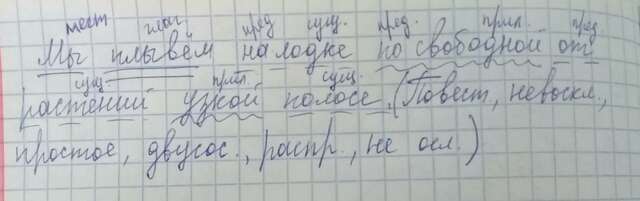 мест глаг пред сущ. пред. прил. пред
Мы плывём на лодке по свободной от
сущ прил. сущ.
растений узкой полосе. (Повест, невоскл.,
простое, двусос., распр., не осл.)